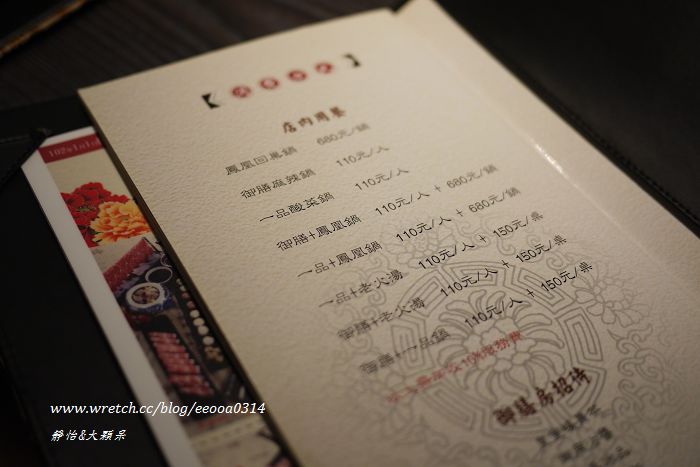 店內用餐
鳳凰回巢鍋 680元/鍋
御膳麻辣鍋 110元/人
一品酸菜鍋 110元/人
御膳+鳳凰鍋 110元/人 + 680元/鍋
一品+鳳凰鍋 110元/人 + 680元/鍋
一品+老火湯 110元/人 + 150元/桌
御膳+老火湯 110元/人 + 150元/桌
御膳+一品鍋 110元/人 + 150元/桌
御膳房招待
www.wretch.cc/blog/eeooa0314
靜怡&大顆呆